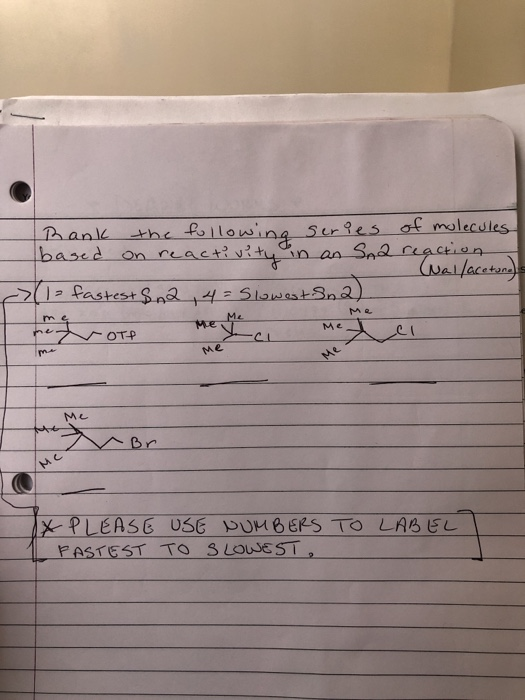 Rank the following series of molecules
based on reactivity in an Sn2 reaction
(NaI/acetone)
(1 = fastest Sn2, 4 = Slowest Sn2)
me
me
me
OTf
Me
Me
Me
Cl
Me
Me
Me
Cl
Me
Me
Me
Br
* PLEASE USE NUMBERS TO LABEL
FASTEST TO SLOWEST.